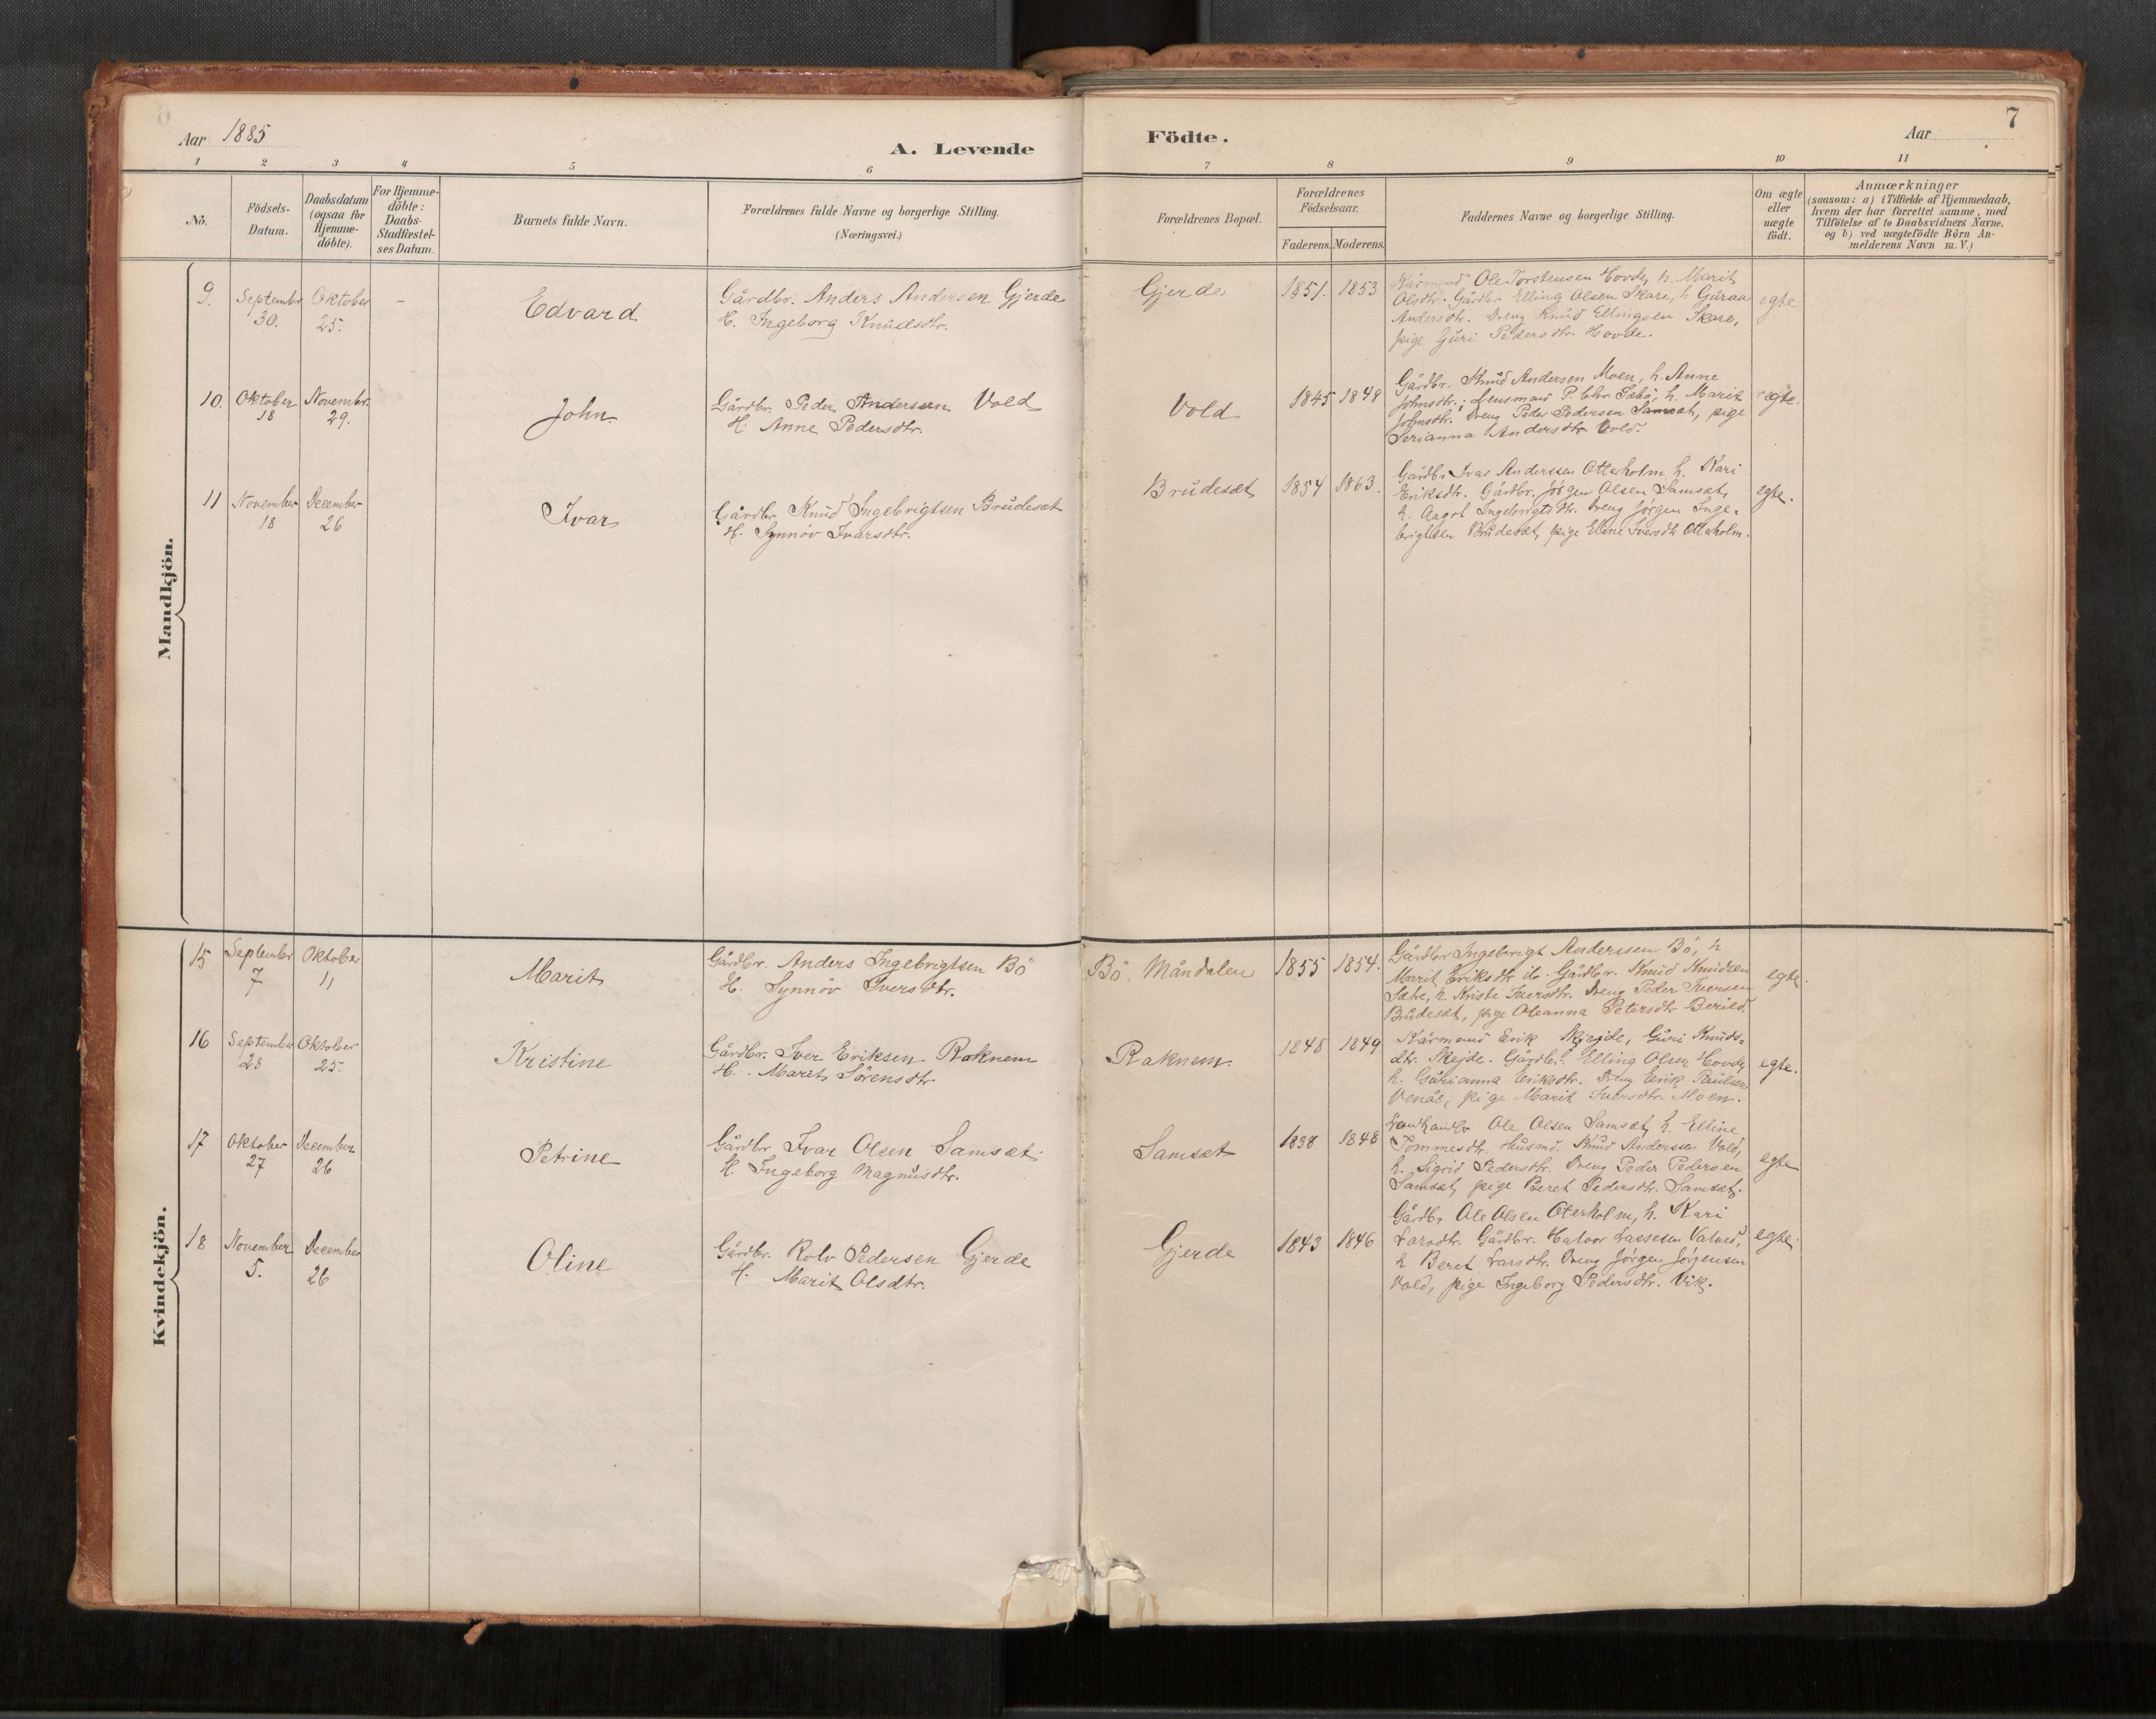 Aar 1885
A. Levende
Födte.
Aar
7
1 2 3 4 5 6 7 8 9 10 11
No.
Födsels-
Datum.
Daabsdatum
(ogsaa for
Hjemme-
döbte).
For Hjemme-
döbte:
Daabs-
Stadfæstel-
ses Datum.
Barnets fulde Navn.
Forældrenes fulde Navne og borgerlige Stilling.
(Næringsvei.)
Forældrenes Bopæl.
Forældrenes
Födselsaar.
Faderens. Moderens.
Faddernes Navne og borgerlige Stilling.
Om ægte
eller
uægte
födt.
Anmærkninger
(saasom: a) i Tilfælde af Hjemmedaab,
hvem der har forrettet samme, med
Tilföielse af to Daabsvidners Navne.
og b) ved uægtefödte Börn An-
melderens Navn m. V.)
Mandkjön.
9. Septembr 30. Oktober 25. –
Edvard
Gårdbr. Anders Andersen Gjerde
H. Ingeborg Knudsdtr.
Gjerde 1851. 1853
Kårmand Ole Torstensen Hovde, h. Marit
Olsdtr. Gårdbr Elling Olsen Skare, h Guraa
Andersdtr. Dreng Knud Ellingsen Skare,
pige Guri Pedersdtr. Hovde.
egte
10. Oktober 18 Novembr. 29.
John
Gårdbr. Peder Andersen Vold
H. Anne Pedersdtr.
Vold 1845 1848
Gårdbr. Knud Andersen Moen, h. Anne
Johnsdtr.; Lensmand P. Chr. Sæbö, h. Marit
Johnsdtr. Dreng Peder Pedersen Samsæt, pige
Serianna Andersdtr Vold.
egte.
11 November 18 December 26
Ivar
Gårdbr Knud Ingebrigtsen Brudesæt
H. Synnöv Ivarsdtr.
Brudesæt 1854 1863.
Gårdbr Ivar Anderssen Otterholm, h. Kari
Eriksdtr. Gårdbr. Jørgen Olsen Samsæt,
h. Aagot Ingebrigtsdtr. Dreng Jørgen Inge-
brigtsen Brudesæt, pige Eline Iversdtr Otterholm.
egte.
Kvindekjön.
15 September 7 Oktober 11
Marit
Gårdbr. Anders Ingebrigtsen Bö
H. Synnöv Iversdtr.
Bö, Måndalen 1855 1854.
Gårdbr Ingebrigt Anderssen Bö, h
Marit Eriksdtr ib. Gårdbr. Knud Knudsen
Sætre, h Kristi Iversdtr. Dreng Peder Iversen
Brudesæt, pige Oleanna Petersdtr Berild.
egte.
16 September 23 Oktober 25.
Kristine
Gårdbr. Iver Eriksen Raknem
H. Marit Sörensdtr
Raknem. 1848 1849
Kårmand Erik Skjejde, Guri Knuds-
dtr. Skejde. Gårdbr. Elling Olsen Hovde,
h. Gurianna Eriksdtr. Dreng Erik Paulsen
Venås, pige Marit Iversdtr. Moen.
egte.
17 Oktober 27 December 26
Petrine
Gårdbr Ivar Olsen Samsæt.
H. Ingeborg Magnusdtr.
Samsæt 1838 1848
Landhandlr Ole Olsen Samsæt, h. Elline
Tommesdtr. Husmd. Knud Anderssen Vold,
h. Sigrid Pedersdtr. Dreng Peder Pedersen
Samsæt, pige Beret Pedersdtr. Samsæt.
egte
18 November 5. December 26
Oline
Gårdbr. Rolv Pedersen Gjerde
H. Marit Olsdtr.
Gjerde 1843 1846
Gårdbr Ole Olsen Oterholm, h. Kari
Larsdtr. Gårdbr. Halvor Lassesen Valved,
h Beret Larsdtr. Dreng Jørgen Jørgensen
Vold, pige Ingeborg Pedersdtr. Vik.
egte.